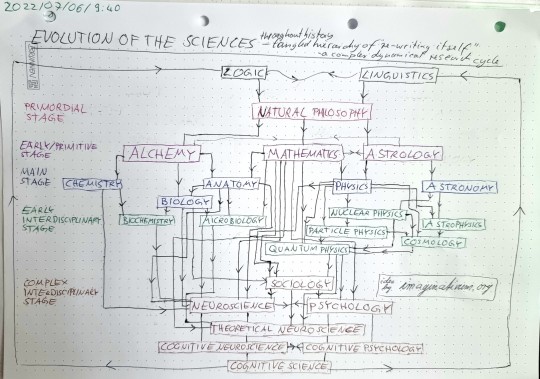 2022/07/06/9:40
EVOLUTION OF THE SCIENCES throughout history
- tangled hierarchy of "re-writing itself"
- a complex dynamical research cycle
LOGIC LINGUISTICS
PRIMORDIAL STAGE
NATURAL PHILOSOPHY
EARLY/PRIMITIVE STAGE
ALCHEMY MATHEMATICS ASTROLOGY
MAIN STAGE
CHEMISTRY ANATOMY PHYSICS ASTRONOMY
BIOLOGY
EARLY INTERDISCIPLINARY STAGE
BIOCHEMISTRY MICROBIOLOGY NUCLEAR PHYSICS
ASTROPHYSICS
PARTICLE PHYSICS
COSMOLOGY
QUANTUM PHYSICS
COMPLEX INTERDISCIPLINARY STAGE
SOCIOLOGY
idea by imaginatism.org
NEUROSCIENCE PSYCHOLOGY
THEORETICAL NEUROSCIENCE
COGNITIVE NEUROSCIENCE COGNITIVE PSYCHOLOGY
COGNITIVE SCIENCE